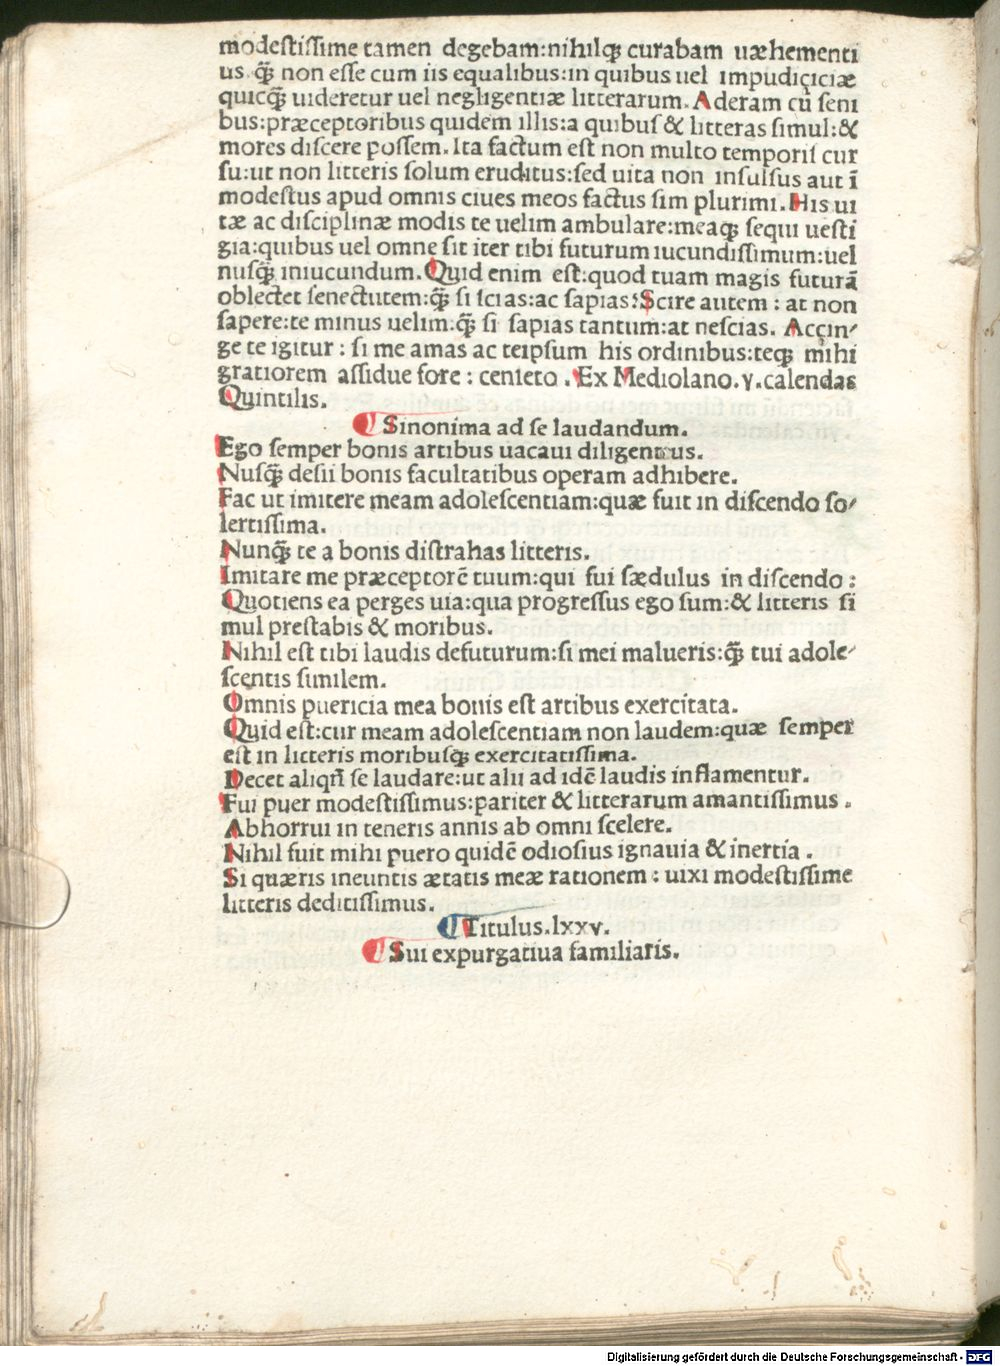 modestissime tamen degebam:nihilqꝫ curabam uæhementi
us qƺ̃ non esse cum iis equalibus:in quibus uel impudiçiciæ
quicqƺ̃ uideretur uel negligentiæ litterarum. Aderam cū seni
bus:præceptoribus quidem illis:a quibus & litteras simul:&
mores discere possem. Ita factum est non multo temporis cur
su:ut non litteris solum eruditus:sed uita non insulsus aut ī
modestus apud omnis ciues meos factus sim plurimi. His ui
tæ ac disciplinæ modis te uelim ambulare:meaqꝫ sequi uesti
gia:quibus uel omne sit iter tibi futurum iucundissimum:uel
nusqƺ̃ iniucundum. Quid enim est:quod tuam magis futurā
oblectet senectutem:qƺ̃ si scias:ac sapias? Scire autem : at non
sapere:te minus uelim:qƺ̃ si sapias tantum:at nescias. Accin⸗
ge te igitur : si me amas ac teipsum his ordinibus:teqꝫ mihi
gratiorem assidue fore : censeto . Ex Mediolano.v.calendas
Quintilis.
¶ Sinonima ad se laudandum.
Ego semper bonis artibus uacaui diligentius.
Nusqƺ̃ desii bonis facultatibus operam adhibere.
Fac ut imitere meam adolescentiam:quæ fuit in discendo so⸗
lertissima.
Nunqƺ̃ te a bonis distrahas litteris.
Imitare me præceptorē tuum:qui fui sædulus in discendo :
Quotiens ea perges uia:qua progressus ego sum:& litteris si
mul prestabis & moribus.
Nihil est tibi laudis defuturum:si mei malueris:qƺ̃ tui adole⸗
scentis similem.
Omnis puericia mea bonis est artibus exercitata.
Quid est:cur meam adolescentiam non laudem:quæ semper
est in litteris moribusqꝫ exercitatissima.
Decet aliqn̄ se laudare:ut alii ad idē laudis inflamentur.
Fui puer modestissimus:pariter & litterarum amantissimus .
Abhorrui in teneris annis ab omni scelere.
Nihil fuit mihi puero quidē odiosius ignauia & inertia .
Si quæris ineuntis ætatis meæ rationem : uixi modestissime
litteris deditissimus.
¶ Titulus.lxxv.
¶ Sui expurgatiua familiaris.
Digitalisierung gefördert durch die Deutsche Forschungsgemeinschaft - DFG